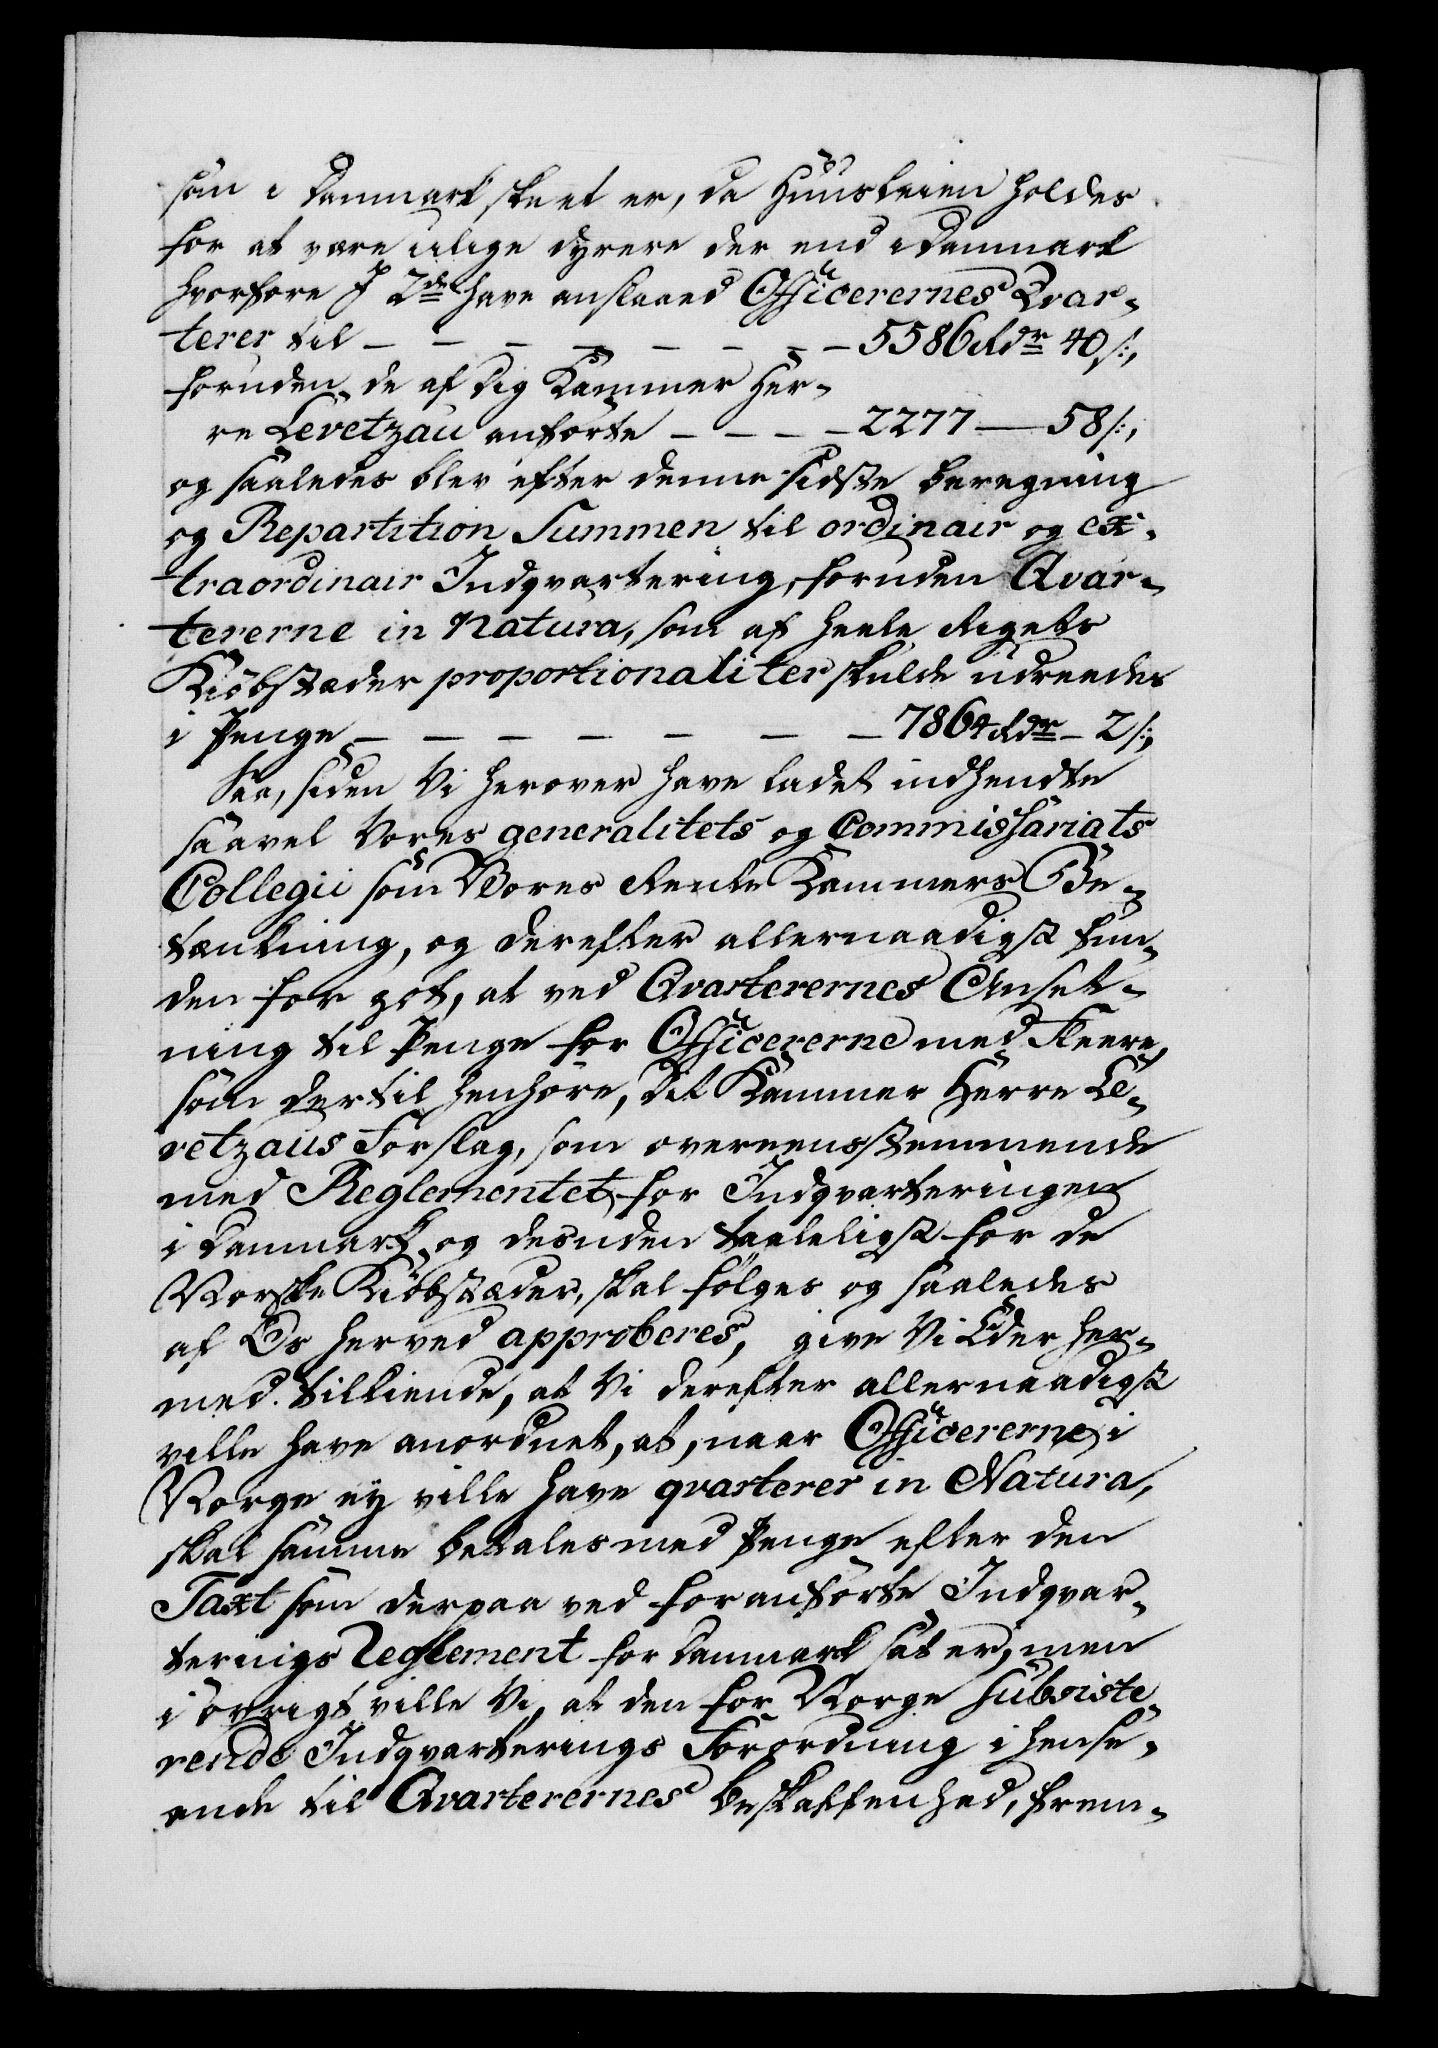 som i Danmark skeet er, da Huusleien holdes
for at være ulige dyrere der end i Danmark
hvorfore I 2de have anslaaed Officerernes Qvar-
terer til — — — — — — — 5586 Rdr 40 s:,
foruden de af Dig Kammer Her-
re Levetzau anførte — — — — 2277 — 58 s:,
og saaledes blev efter denne sidste beregning
og Repartition Summen til ordinair og ex-
traordinair Indqvartering, foruden Qvar-
tererne in Natura, som af heele Rigets
Kiöbstæder proportionaliter skulde udreedes
i Penge — — — — — — — 7864 Rdr — 2 s:,
Saa, siden Vi herover have ladet indhendte
saavel Vores generalitets og Commissariats
Collegii som Vores Rente Kammers Be-
tænkning, og derefter allernaadigst fun-
den for got, at ved Qvarterernes Anset-
ning til Penge for Officererne med Fleere,
som dertil henhöre, Dit Kammer Herre Le-
vetzaus Forslag, som overeensstemmende
med Reglementet for Indqvarteringen
i Danmark og desuden taaleligst for de
Norske Kiöbstæder, skal fölges og saaledes
af Os herved approberes, give Vi Eder her-
med tilkiende, at Vi derefter allernaadigst
ville have anordnet, at, naar Officererne i
Norge ej ville have qvarterer in Natura,
skal samme betales med Penge efter den
Taxt som derpaa ved foranförte Indqvar-
ternigs Reglement for Danmark sat er, men
i övrigt ville Vi, at den for Norge subsiste-
rende Indqvarterings Forordning i hense-
ende til Qvarterernes beskaffenhed, frem-